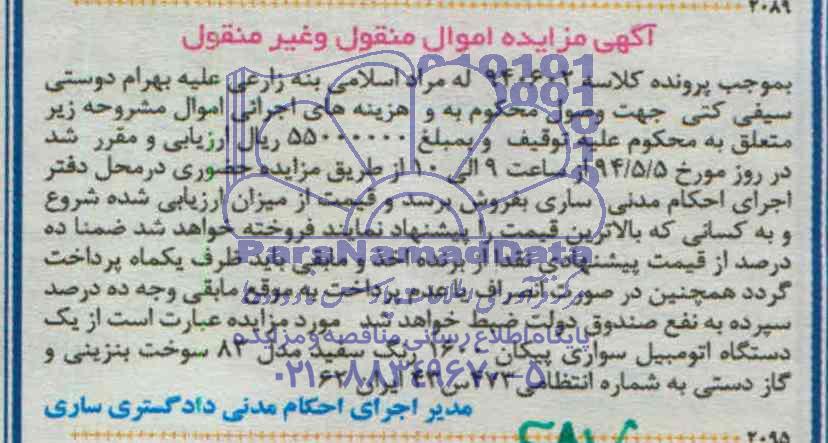 ۲۰۸۹
آگهی مزایده اموال منقول وغیر منقول
بموجب پرونده کلاسه ۹۴۰۶۰۲ له مراد اسلامی بنه زارعی علیه بهرام دوستی
سیفی کتی جهت وصول محکوم به و هزینه های اجرائی اموال مشروحه زیر
متعلق به محکوم علیه توقیف و بمبلغ ۵۵۰۰۰۰۰۰ ریال ارزیابی و مقرر شد
در روز مورخ ۹۴/۵/۵ از ساعت ۹ الی ۱۰ از طریق مزایده حضوری درمحل دفتر
اجرای احکام مدنی ساری بفروش برسد و قیمت از میزان ارزیابی شده شروع
و به کسانی که بالاترین قیمت را پیشنهاد نمایند فروخته خواهد شد ضمنا ده
درصد از قیمت پیشنهادی نقدا از برنده اخذ و مابقی باید ظرف یکماه پرداخت
گردد همچنین در صورت انصراف یا عدم پرداخت به موقع مابقی وجه ده درصد
سپرده به نفع صندوق دولت ضبط خواهد شد مورد مزایده عبارت است از یک
دستگاه اتومبیل سواری پیکان ۱۶۰۰ رنگ سفید مدل ۸۲ سوخت بنزینی و
گاز دستی به شماره انتظامی ۴۷۳س۴۳ ایران ۶۲
مدیر اجرای احکام مدنی دادگستری ساری
۲۰۹۵
ParaNamadData
پایگاه اطلاع رسانی مناقصه و مزایده
۰۲۱-۸۸۳۴۹۶۷۰-۵